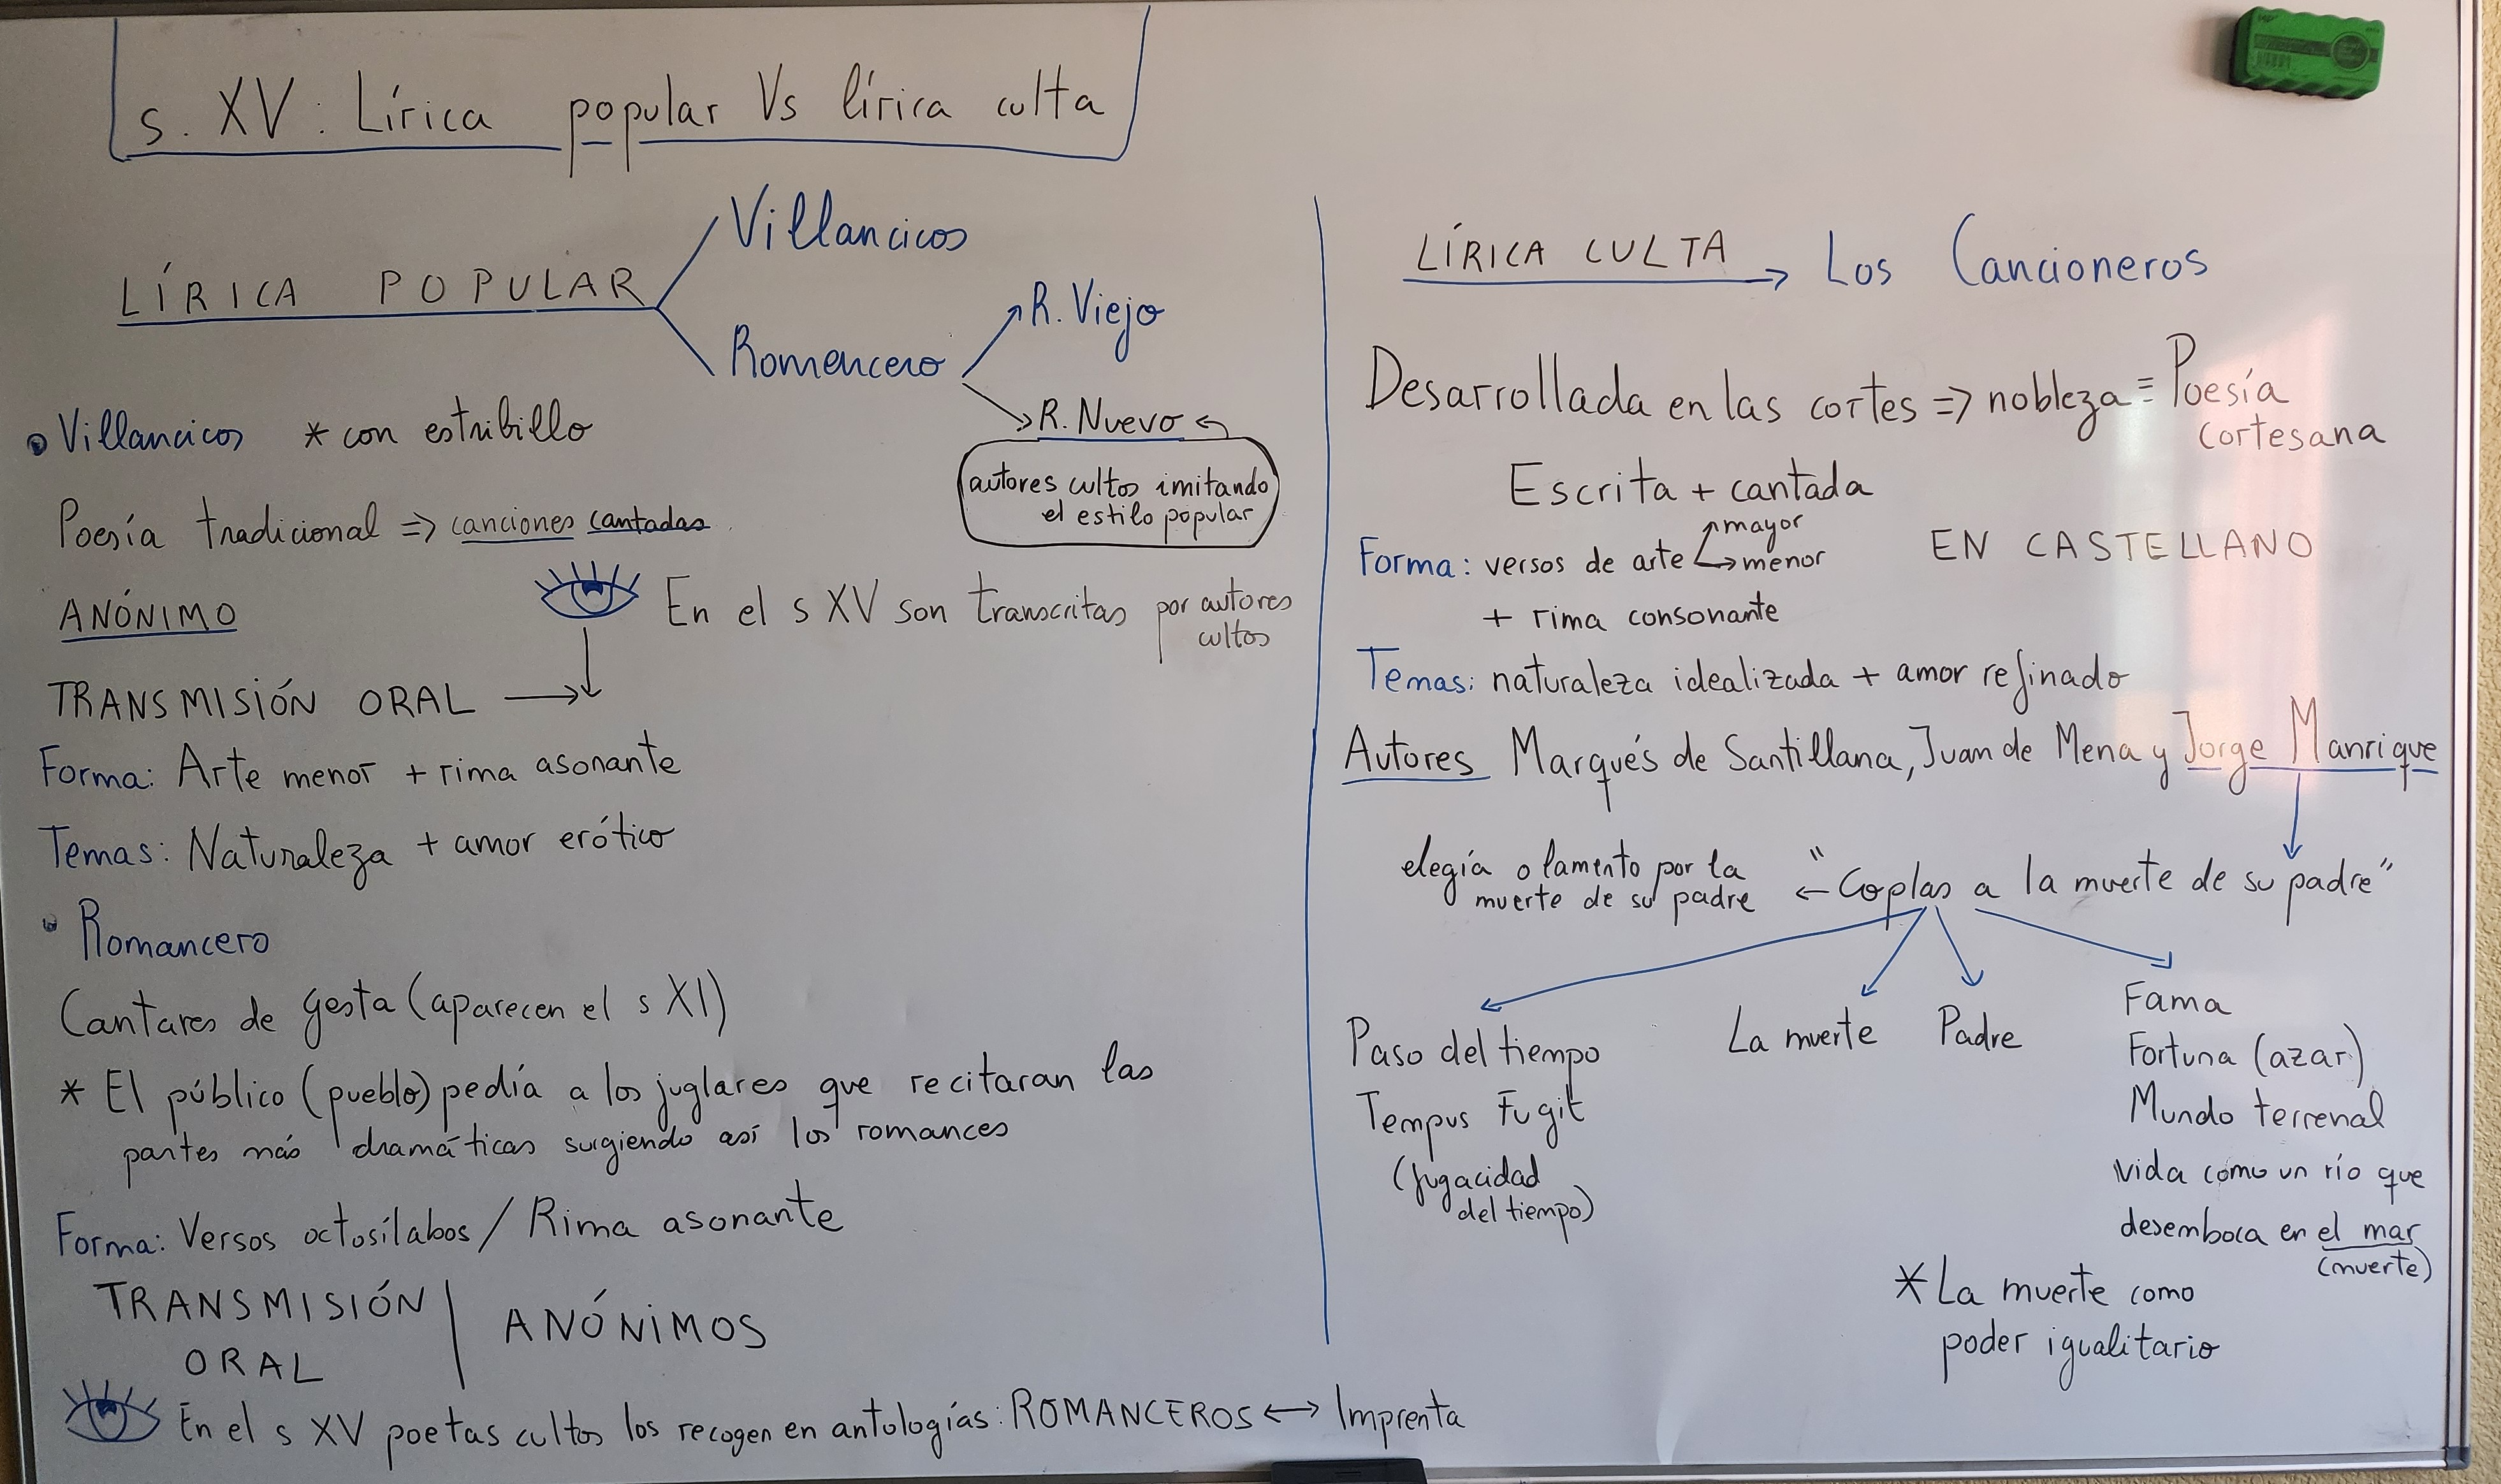 s. XV: Lírica popular Vs lírica culta
LÍRICA POPULAR
Villancicos
Romencero
R. Viejo
R. Nuevo
autores cultos imitando
el estilo popular
Villancicos * con estribillo
Poesía tradicional => canciones cantadas
ANÓNIMO
En el s XV son transcritas por autores
cultos
TRANSMISIÓN ORAL →
Forma: Arte menor + rima asonante
Temas: Naturaleza + amor erótico
• Romancero
Cantares de gesta (aparecen el s XI)
* El público (pueblo) pedía a los juglares que recitaran las
partes más dramáticas surgiendo así los romances
Forma: Versos octosílabos / Rima asonante
TRANSMISIÓN
ORAL
ANÓNIMOS
En el s XV poetas cultos los recogen en antologías: ROMANCEROS ↔ Imprenta
LÍRICA CULTA → Los Cancioneros
Desarrollada en las cortes => nobleza = Poesía
cortesana
Escrita + cantada
Forma: versos de arte
mayor
menor
EN CASTELLANO
+ rima consonante
Temas: naturaleza idealizada + amor refinado
Autores Marqués de Santillana, Juan de Mena y Jorge Manrique
elegía o lamento por la
muerte de su padre
← "Coplas a la muerte de su padre"
Paso del tiempo
Tempus Fugit
(fugacidad
del tiempo)
La muerte
Padre
Fama
Fortuna (azar)
Mundo terrenal
vida como un río que
desemboca en el mar
(muerte)
* La muerte como
poder igualitario